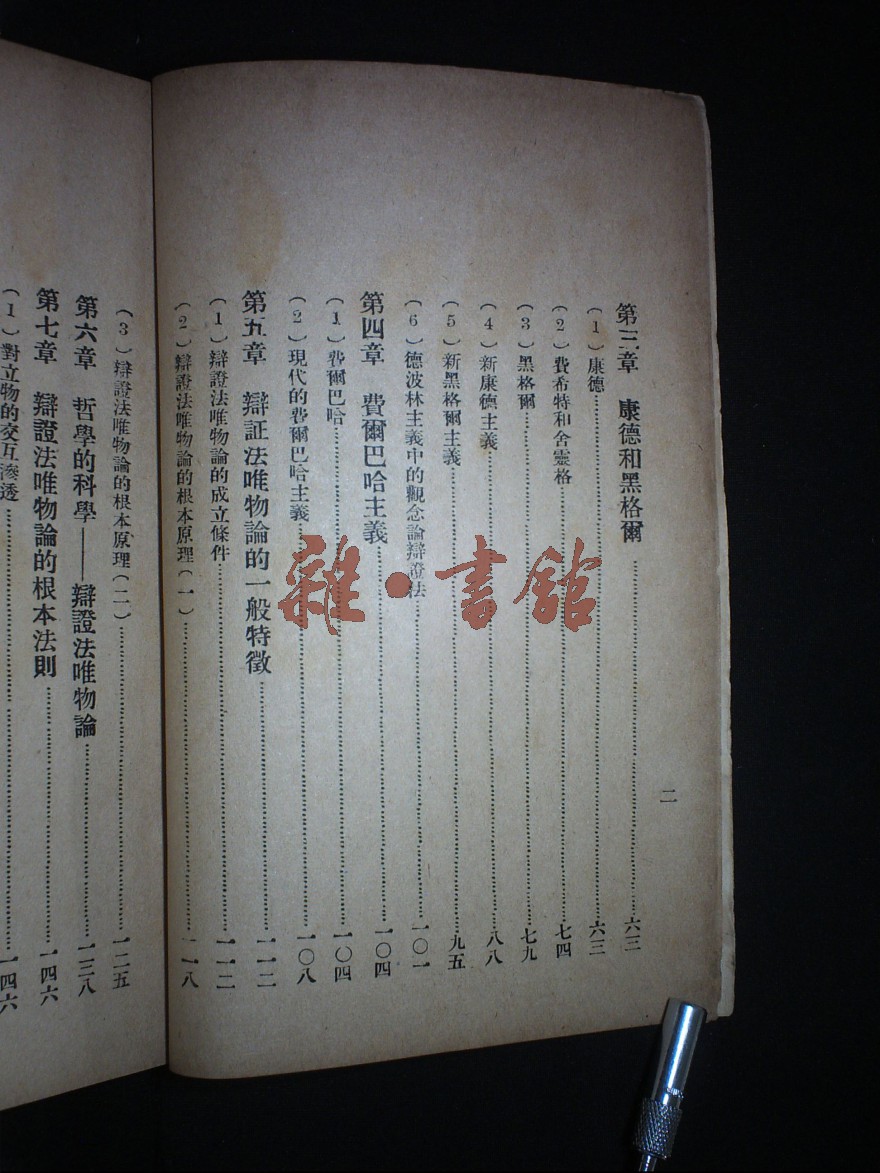 二
第三章 康德和黑格爾……六三
(1)康德……六三
(2)費希特和舍靈格……七四
(3)黑格爾……七九
(4)新康德主義……八八
(5)新黑格爾主義……九五
(6)德波林主義中的觀念論辯證法……一〇一
第四章 費爾巴哈主義……一〇四
(1)費爾巴哈……一〇四
(2)現代的費爾巴哈主義……一〇八
第五章 辯証法唯物論的一般特徵……一一二
(1)辯證法唯物論的成立條件……一一二
(2)辯證法唯物論的根本原理(一)……一一八
(3)辯證法唯物論的根本原理(二)……一二五
第六章 哲學的科學——辯證法唯物論……一三八
第七章 辯證法唯物論的根本法則……一四六
(1)對立物的交互滲透……一四六
雜·書館